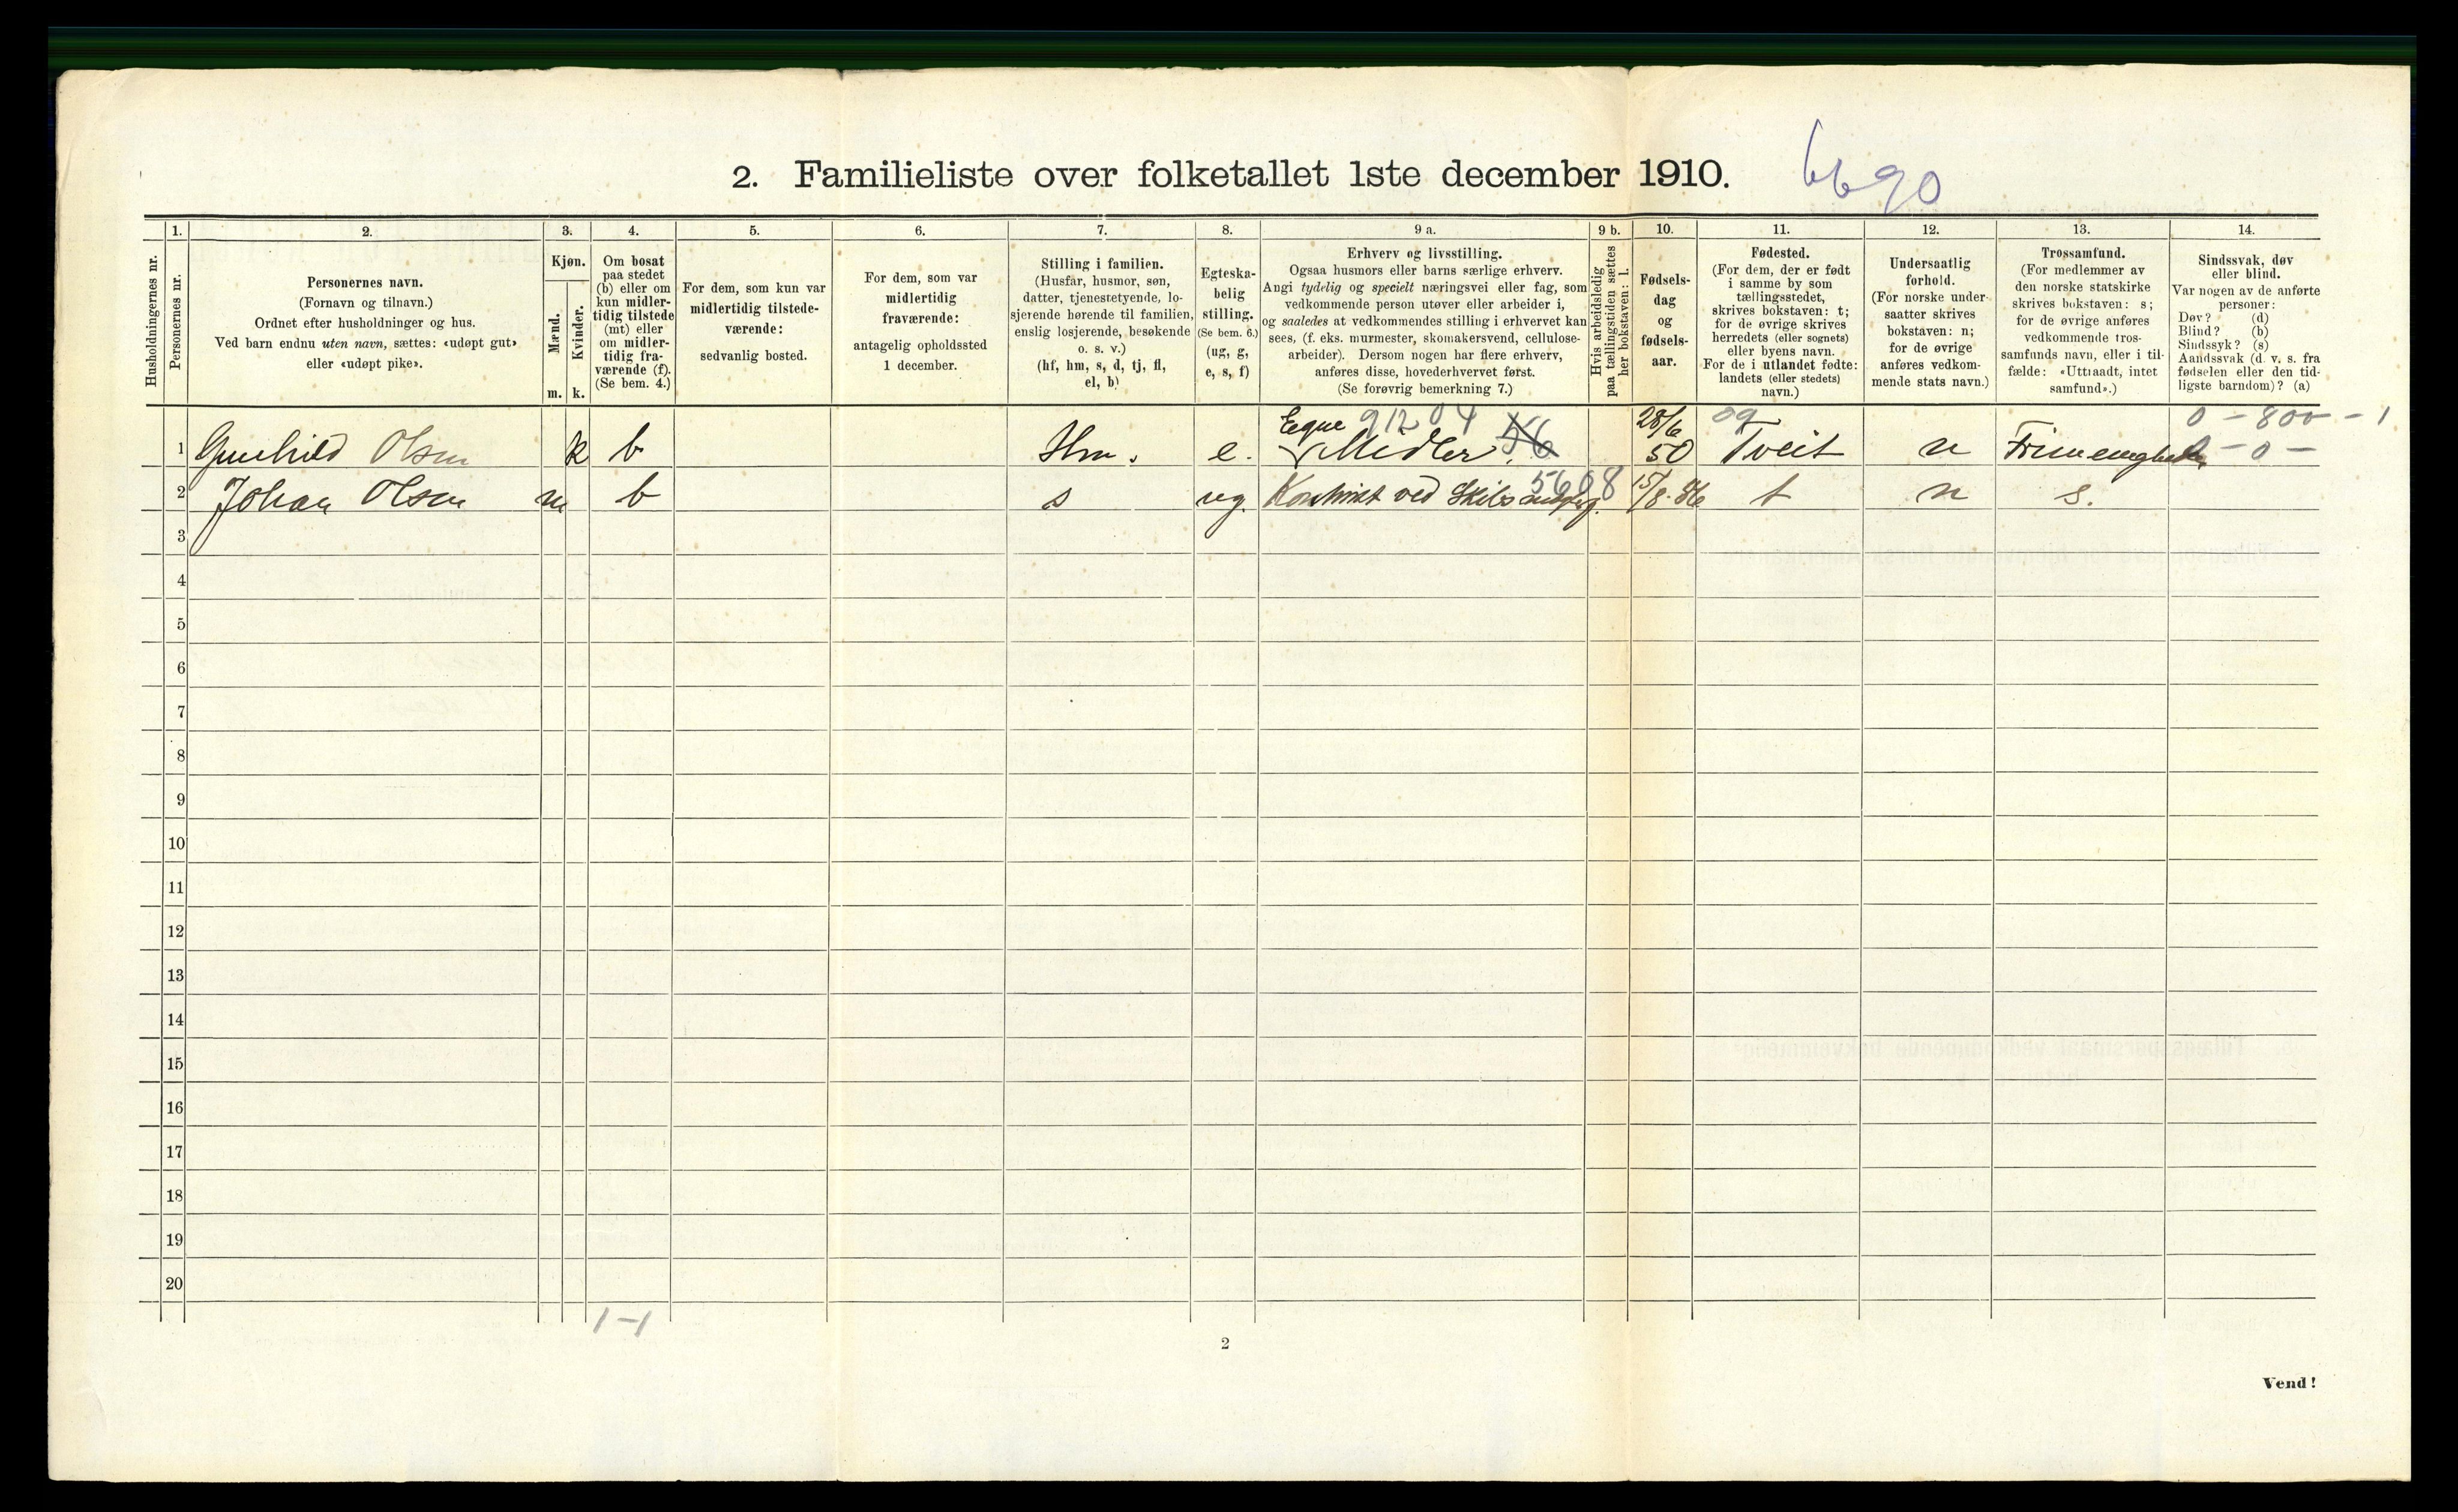 2. Familieliste over folketallet 1ste december 1910. 6690
Husholdningernes nr.
1.
Personernes nr.
2.
Personernes navn.
(Fornavn og tilnavn.)
Ordnet efter husholdninger og hus.
Ved barn endnu uten navn, sættes: «udøpt gut»
eller «udøpt pike».
3.
Kjøn.
Mænd.
Kvinder.
m. k.
4.
Om bosat
paa stedet
(b) eller om
kun midler-
tidig tilstede
(mt) eller
om midler-
tidig fra-
værende (f).
(Se bem. 4.)
5.
For dem, som kun var
midlertidig tilstede-
værende:
sedvanlig bosted.
6.
For dem, som var
midlertidig
fraværende:
antagelig opholdssted
1 december.
7.
Stilling i familien.
(Husfar, husmor, søn,
datter, tjenestetyende, lo-
sjerende hørende til familien,
enslig losjerende, besøkende
o. s. v.)
(hf, hm, s, d, tj, fl,
el, b)
8.
Egteska-
belig
stilling.
(Se bem. 6.)
(ug, g,
e, s, f)
9 a.
Erhverv og livsstilling.
Ogsaa husmors eller barns særlige erhverv.
Angi tydelig og specielt næringsvei eller fag, som
vedkommende person utøver eller arbeider i,
og saaledes at vedkommendes stilling i erhvervet kan
sees, (f. eks. murmester, skomakersvend, cellulose-
arbeider). Dersom nogen har flere erhverv,
anføres disse, hovederhvervet først.
(Se forøvrig bemerkning 7.)
9 b.
Hvis arbeidsledig
paa tællingstiden sættes
her bokstaven: l.
10.
Fødsels-
dag
og
fødsels-
aar.
11.
Fødested.
(For dem, der er født
i samme by som
tællingsstedet,
skrives bokstaven: t;
for de øvrige skrives
herredets (eller sognets)
eller byens navn.
For de i utlandet fødte:
landets (eller stedets)
navn.)
12.
Undersaatlig
forhold.
(For norske under-
saatter skrives
bokstaven: n;
for de øvrige
anføres vedkom-
mende stats navn.)
13.
Trossamfund.
(For medlemmer av
den norske statskirke
skrives bokstaven: s;
for de øvrige anføres
vedkommende tros-
samfunds navn, eller i til-
fælde: «Uttraadt, intet
samfund».)
14.
Sindssvak, døv
eller blind.
Var nogen av de anførte
personer:
Døv? (d)
Blind? (b)
Sindssyk? (s)
Aandssvak (d. v. s. fra
fødselen eller den tid-
ligste barndom)? (a)
Egne 91204 28/6 09 0 - 800 - 1
1 Gunhild Olsen k b Hm. e. Midler 56 50 Tveit n Frimenigheden 0 -
2 Johan Olsen m b s ug. Kontorist ved 5608 15/8 86 t n s.
3
4
5
6
7
8
9
10
11
12
13
14
15
16
17
18
19
20
1-1
2
Vend!